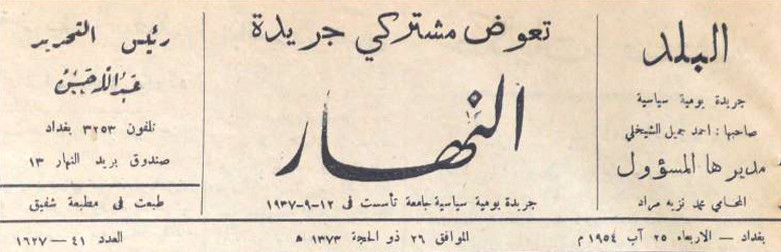 البلد
جريدة يومية سياسية
صاحبها : احمد جميل الشيخلي
مديرها المسؤول
المحامي محمد نزيه مراد
تعوض مشتركي جريدة
النهار
جريدة يومية سياسية جامعة تأسست فى ١٢-٩-١٩٣٧
رئيس التحرير
عبدالله حسن
تلفون ٣٢٥٣ بغداد
صندوق بريد النهار ١٣
طبعت فى مطبعة شفيق
بغداد – الاربعاء ٢٥ آب ١٩٥٤ م
الموافق ٢٦ ذو الحجة ١٣٧٣ ھ
العدد ٤١ – ١٦٢٧